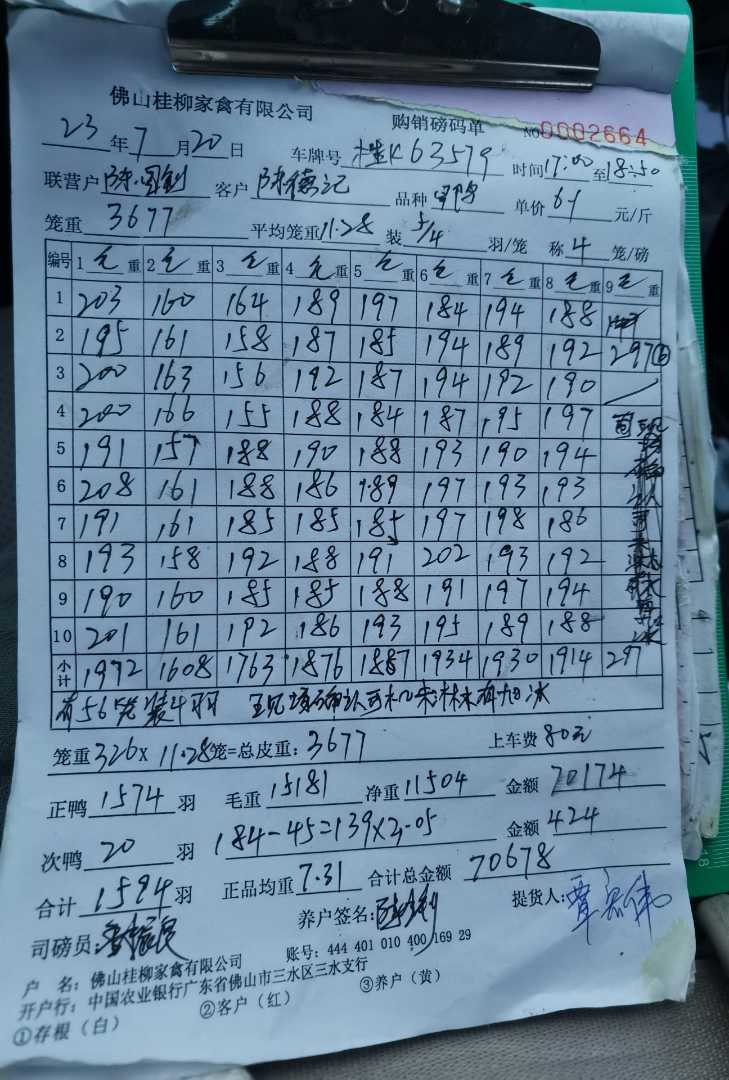 佛山桂柳家禽有限公司 购销磅码单 NO0002664
23年7月20日 车牌号 桂K63579 时间17:00至18:50
联营户 客户 陈德记 品种 单价 元/斤
笼重 3677 平均笼重11.28 装5/4羽/笼 称4笼/磅
编号 1毛重 2毛重 3毛重 4毛重 5毛重 6毛重 7毛重 8毛重 9毛重
1 203 160 164 189 197 184 194 188
2 195 161 158 187 185 194 189 192 297⑥
3 200 163 156 192 187 194 192 190
4 200 166 155 188 184 187 195 197
5 191 157 188 190 188 193 190 194
6 208 161 188 186 189 197 193 193
7 191 161 185 185 185 197 198 186
8 193 158 192 188 191 202 193 192
9 190 160 185 185 188 191 197 194
10 201 161 192 186 193 195 189 188
小计 1972 1608 1763 1876 1887 1934 1930 1914 297
有56笼装4羽
笼重326X11.28笼=总皮重:3677 上车费80元
正鸭1574羽 毛重15181 净重11504 金额70174
次鸭20羽 184-45=139X3.05 金额424
合计1594羽 正品均重7.31 合计总金额70678
司磅员: 养户签名: 提货人:
户 名:佛山桂柳家禽有限公司 账号:444 401 010 400 169 29
开户行:中国农业银行广东省佛山市三水区三水支行
①存根(白) ②客户(红) ③养户(黄)